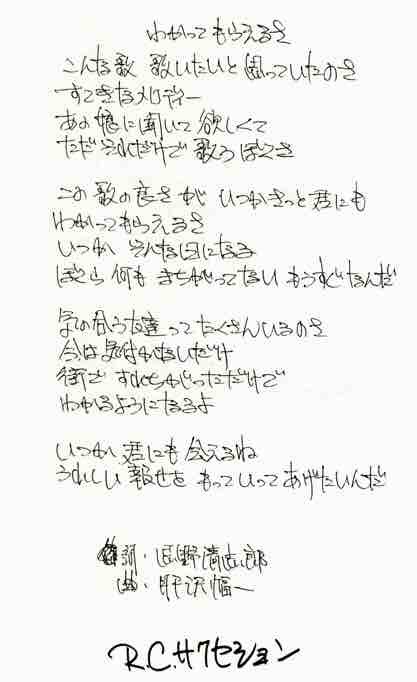 わかってもらえるさ
こんな歌 歌いたいと思っていたのさ
すてきなメロディー
あの娘に聞いて欲しくて
ただそれだけで歌うぼくさ
この歌の良さが いつかきっと君にも
わかってもらえるさ
いつか そんな日になる
ぼくら何も まちがってない もうすぐなんだ
気の合う友達ってたくさんいるのさ
今は気付かないだけ
街で すれちがっただけで
わかるようになるよ
いつか 君にも会えるね
うれしい報せを もっていってあげたいんだ
作詞・忌野清志郎
曲・肝沢幅一
R.C.サクセション